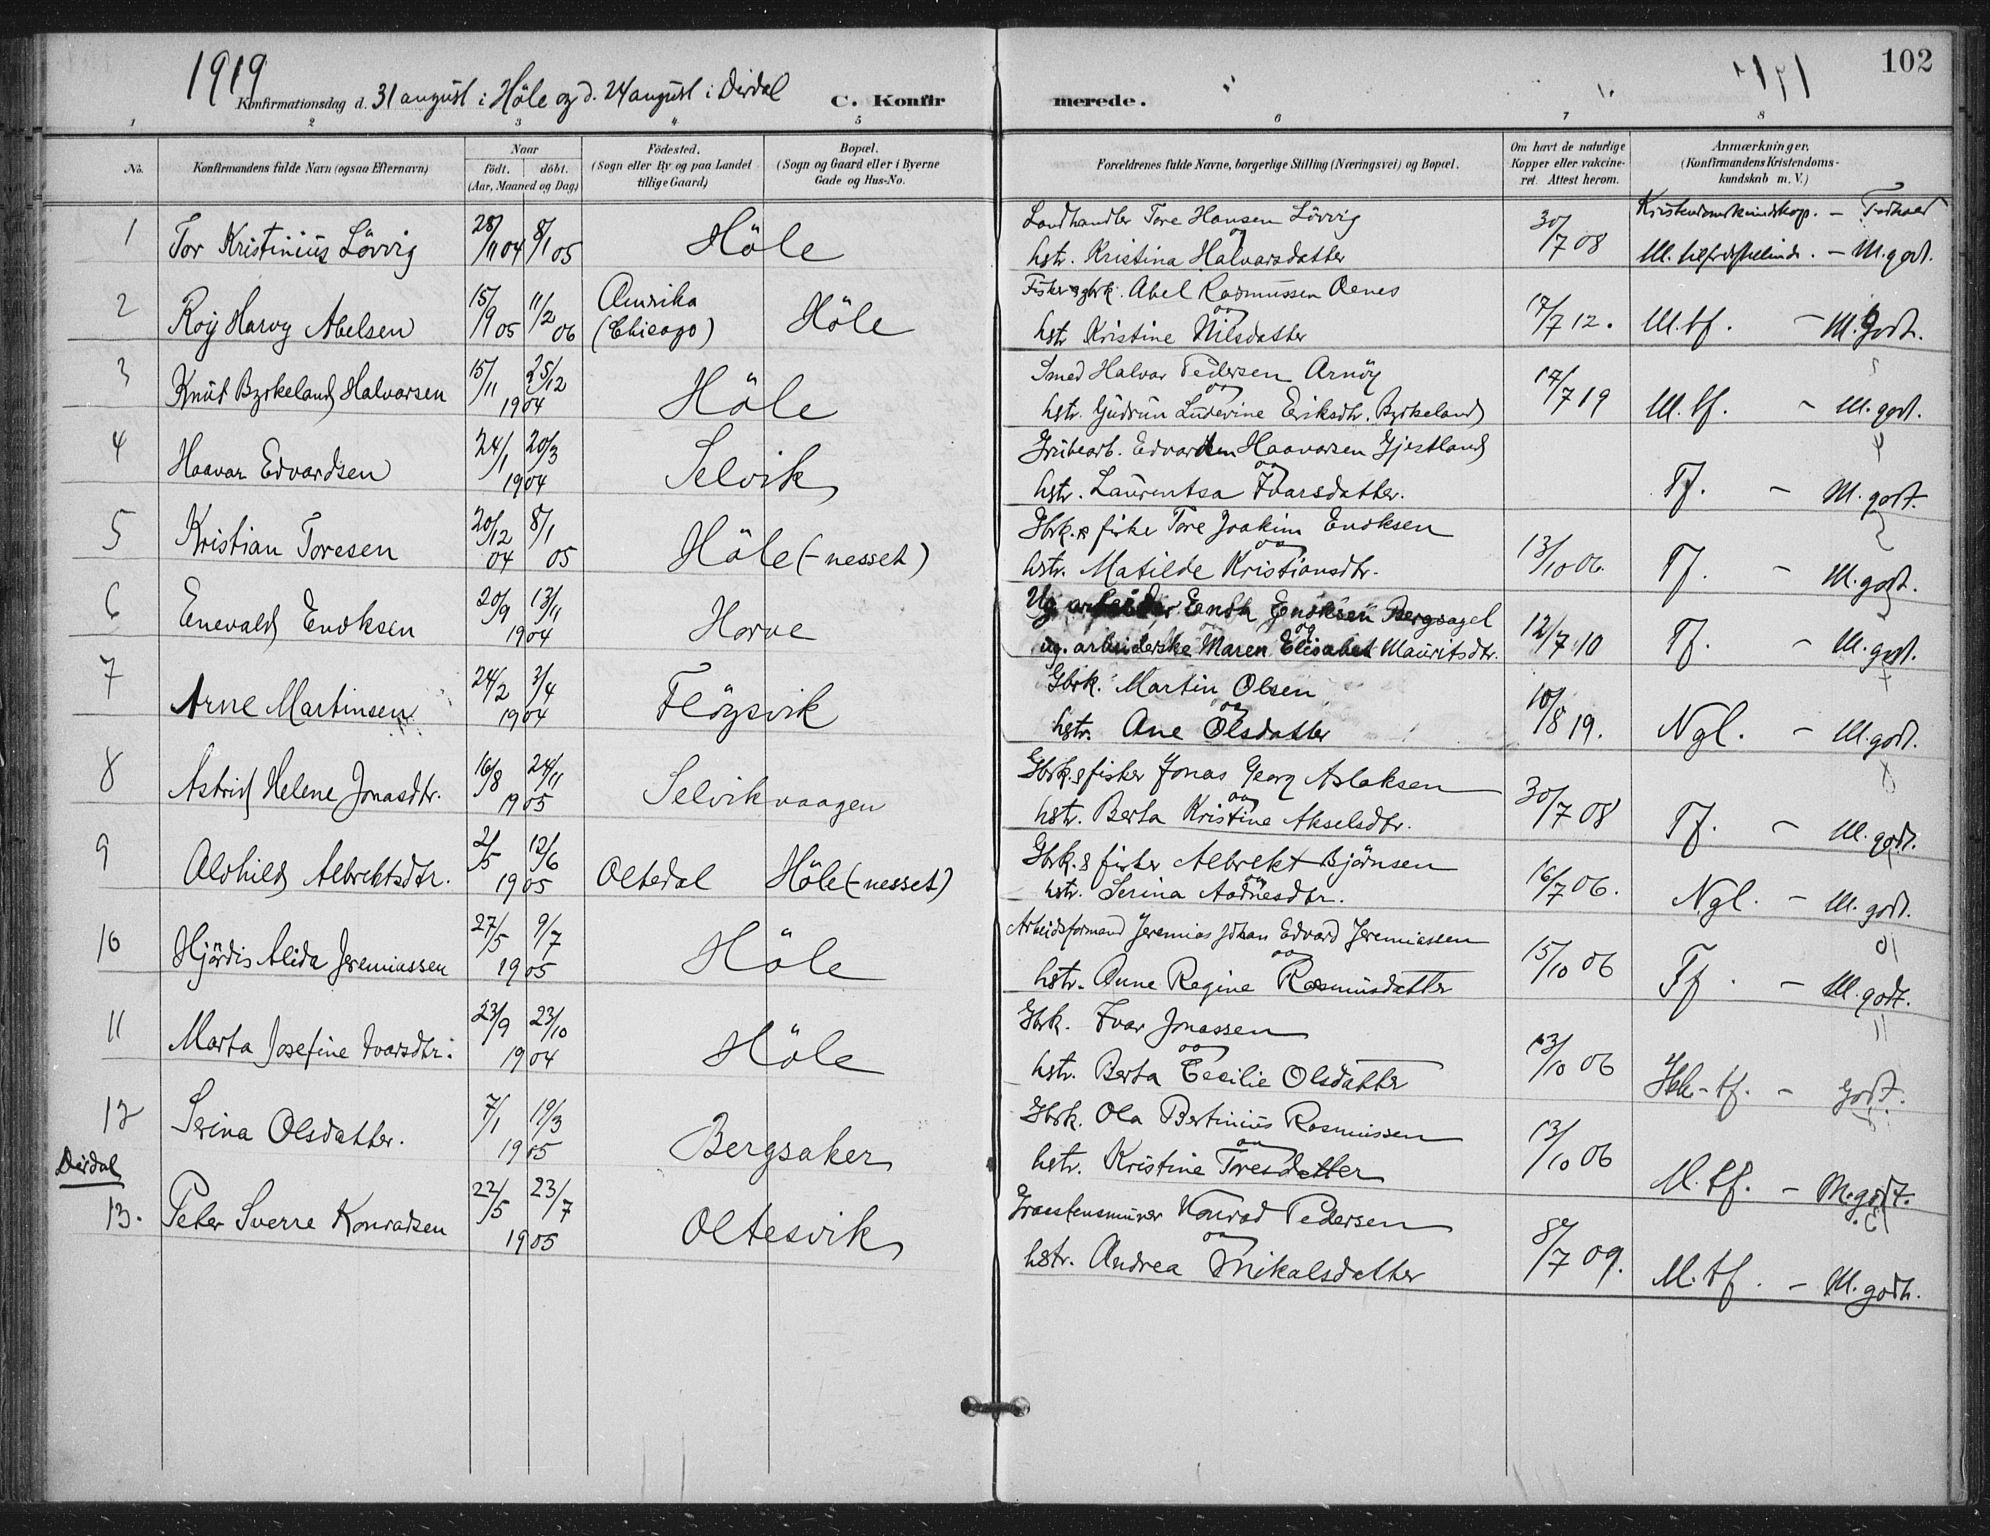 1919
102
Konfirmationsdag d. 31 august i Höle og d. 24 august i Dirdal
C. Konfirmerede.
1 2 3 4 5 6 7 8
No.
Konfirmandens fulde Navn (ogsaa Efternavn)
Naar
født. døbt.
(Aar, Maaned og Dag)
Fødested.
(Sogn eller By og paa Landet
tillige Gaard)
Bopæl.
(Sogn og Gaard eller i Byerne
Gade og Hus-No.
Forældrenes fulde Navne, borgerlige Stilling (Næringsvei) og Bopæl.
Om havt de naturlige
Kopper eller vakcine-
ret. Attest herom.
Anmærkninger.
(Konfirmandens Kristendoms-
kundskab m. V.)
Kristendomskundskap. – Forhold
1 Tor Kristinius Lövvig 28/11 04 8/1 05 Höle Landhandler Tore Hansen Lövvig
og
hstr. Kristina Halvarsdatter 30/7 08 M. tilfredsstillende. – M. godt.
2 Roy Harvy Abelsen 15/9 05 11/2 06 Amerika
(Chicago) Höle Fisker & gbrk. Abel Rasmussen Aenes
og
hstr Kristine Nilsdatter 17/7 12. M. tf. – M. godt.
3 Knut Byrkeland Halvorsen 15/11 25/12
1904 Höle Smed Halvar Pedersen Arnöy
og
hstr. Gudrun Ludevine Eriksdtr. Byrkeland 17/7 19 M. tf. – M. godt.
4 Haavar Edvardsen 24/1 20/3
1904 Selvik Grubearb. Edvard Haavarsen Gjestland
og
hstr. Laurentsa Ivarsdatter. Tf. – M. godt.
5 Kristian Toresen 20/12 04 8/1 05 Höle (-nesset) Gbrk. & fisker Tore Joakim Enoksen
og
hstr. Matilde Kristiansdtr. 13/10 06 Tf. – M. godt.
6 Enevald Enoksen 20/9 13/11
1904 Horve Ug. arbeider Enok Enoksen Bergsagel
og
ug. arbeiderske Maren Elisabet Mauritsdtr. 12/7 10 Tf. – M. godt.
7 Arne Martinsen 24/2 3/4
1904 Flöysvik Gbrk. Martin Olsen
og
hstr. Ane Olsdatter 10/8 19. Ngl. – M. godt.
8 Astrid Helene Jonasdtr. 16/8 24/11
1905 Selvikvaagen Gbrk. & fisker Jonas Georg Aslaksen
og
hstr. Berta Kristine Akselsdtr. 30/7 08 Tf. – M. godt.
9 Alvhild Albrektsdtr. 2/5 12/6
1905 Oltedal Höle (-nesset) Gbrk. & fisker Albrekt Björnsen
og
hstr. Serina Aadnesdtr. 16/7 06. Ngl. – M. godt.
10 Hjördis Alida Jeremiassen 27/5 9/7
1905 Höle Arbeidsformand Jeremias Johan Edvard Jeremiassen
og
hstr. Anne Regine Rasmusdatter 15/10 06 Tf. – M. godt.
11 Marta Josefine Ivarsdtr. 23/9 23/10
1904 Höle Gbrk. Ivar Jonassen
og
hstr. Berta Cecilie Olsdatter 13/10 06 tf. – godt.
12 Serina Olsdatter. 7/1 19/3
1905 Bergsaker Gbrk. Ola Bertinius Rasmussen
og
hstr. Kristine Toresdatter 13/10 06 M. tf. – M. godt.
Dirdal
13. Peter Sverre Konradsen 22/5 23/7
1905 Oltesvik Graastensmurer Konrad Pedersen
og
hstr. Andrea Mikalsdatter 8/7 09. M. tf. – M. godt.